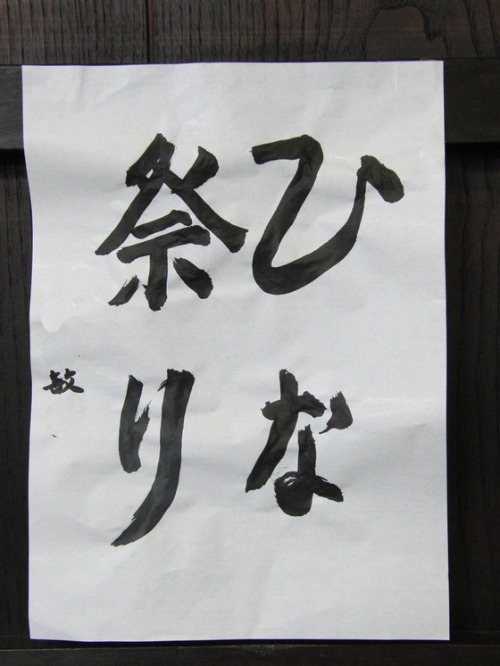 ひな
祭り
敏